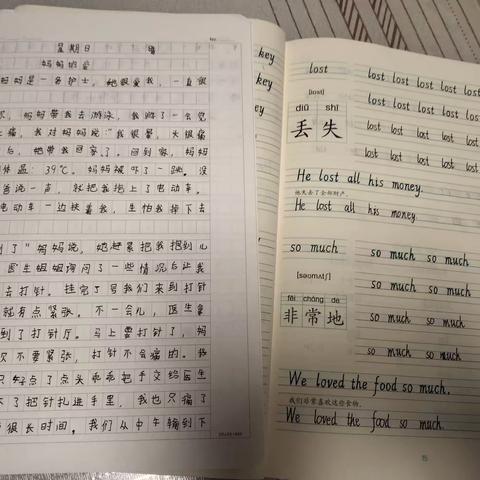 星期日 晴
妈妈的爱
妈妈是一名护士，她很爱我，一直很
妈妈带我去游泳，我游了一会觉
痛，我对妈妈说“我很晕，头很痛
后，她带我回家了。回到家，妈妈
体温：39℃。妈妈被吓了一跳。没
爸说一声，就把我抱上了电动车。
电动车一边扶着我，生怕我掉下去
到了”妈妈说，她赶紧把我抱到儿
医生姐姐询问了一些情况后让我
去打针。挂完了号我们来到打针
就有点紧张。不一会儿，医生
到了打针厅。马上要打针了，妈
不要紧张，打针不会痛的。我
只好点了点头乖乖把手交给医生
不了把针扎进手里，我也只痛了
很长时间，我们从中午输到下
key
key
lost
lost lost lost lost lost
[lɒst]
lost lost lost lost lost
diū shī
丢失
lost lost lost lost lost
lost lost lost lost lost
He lost all his money.
他失去了全部财产。
He lost all his money.
so much
so much so much
[səʊmʌtʃ]
so much so much
fēi cháng de
非常地
so much so much
so much so much
We loved the food so much.
我们非常喜欢这些食物。
We loved the food so much.
15